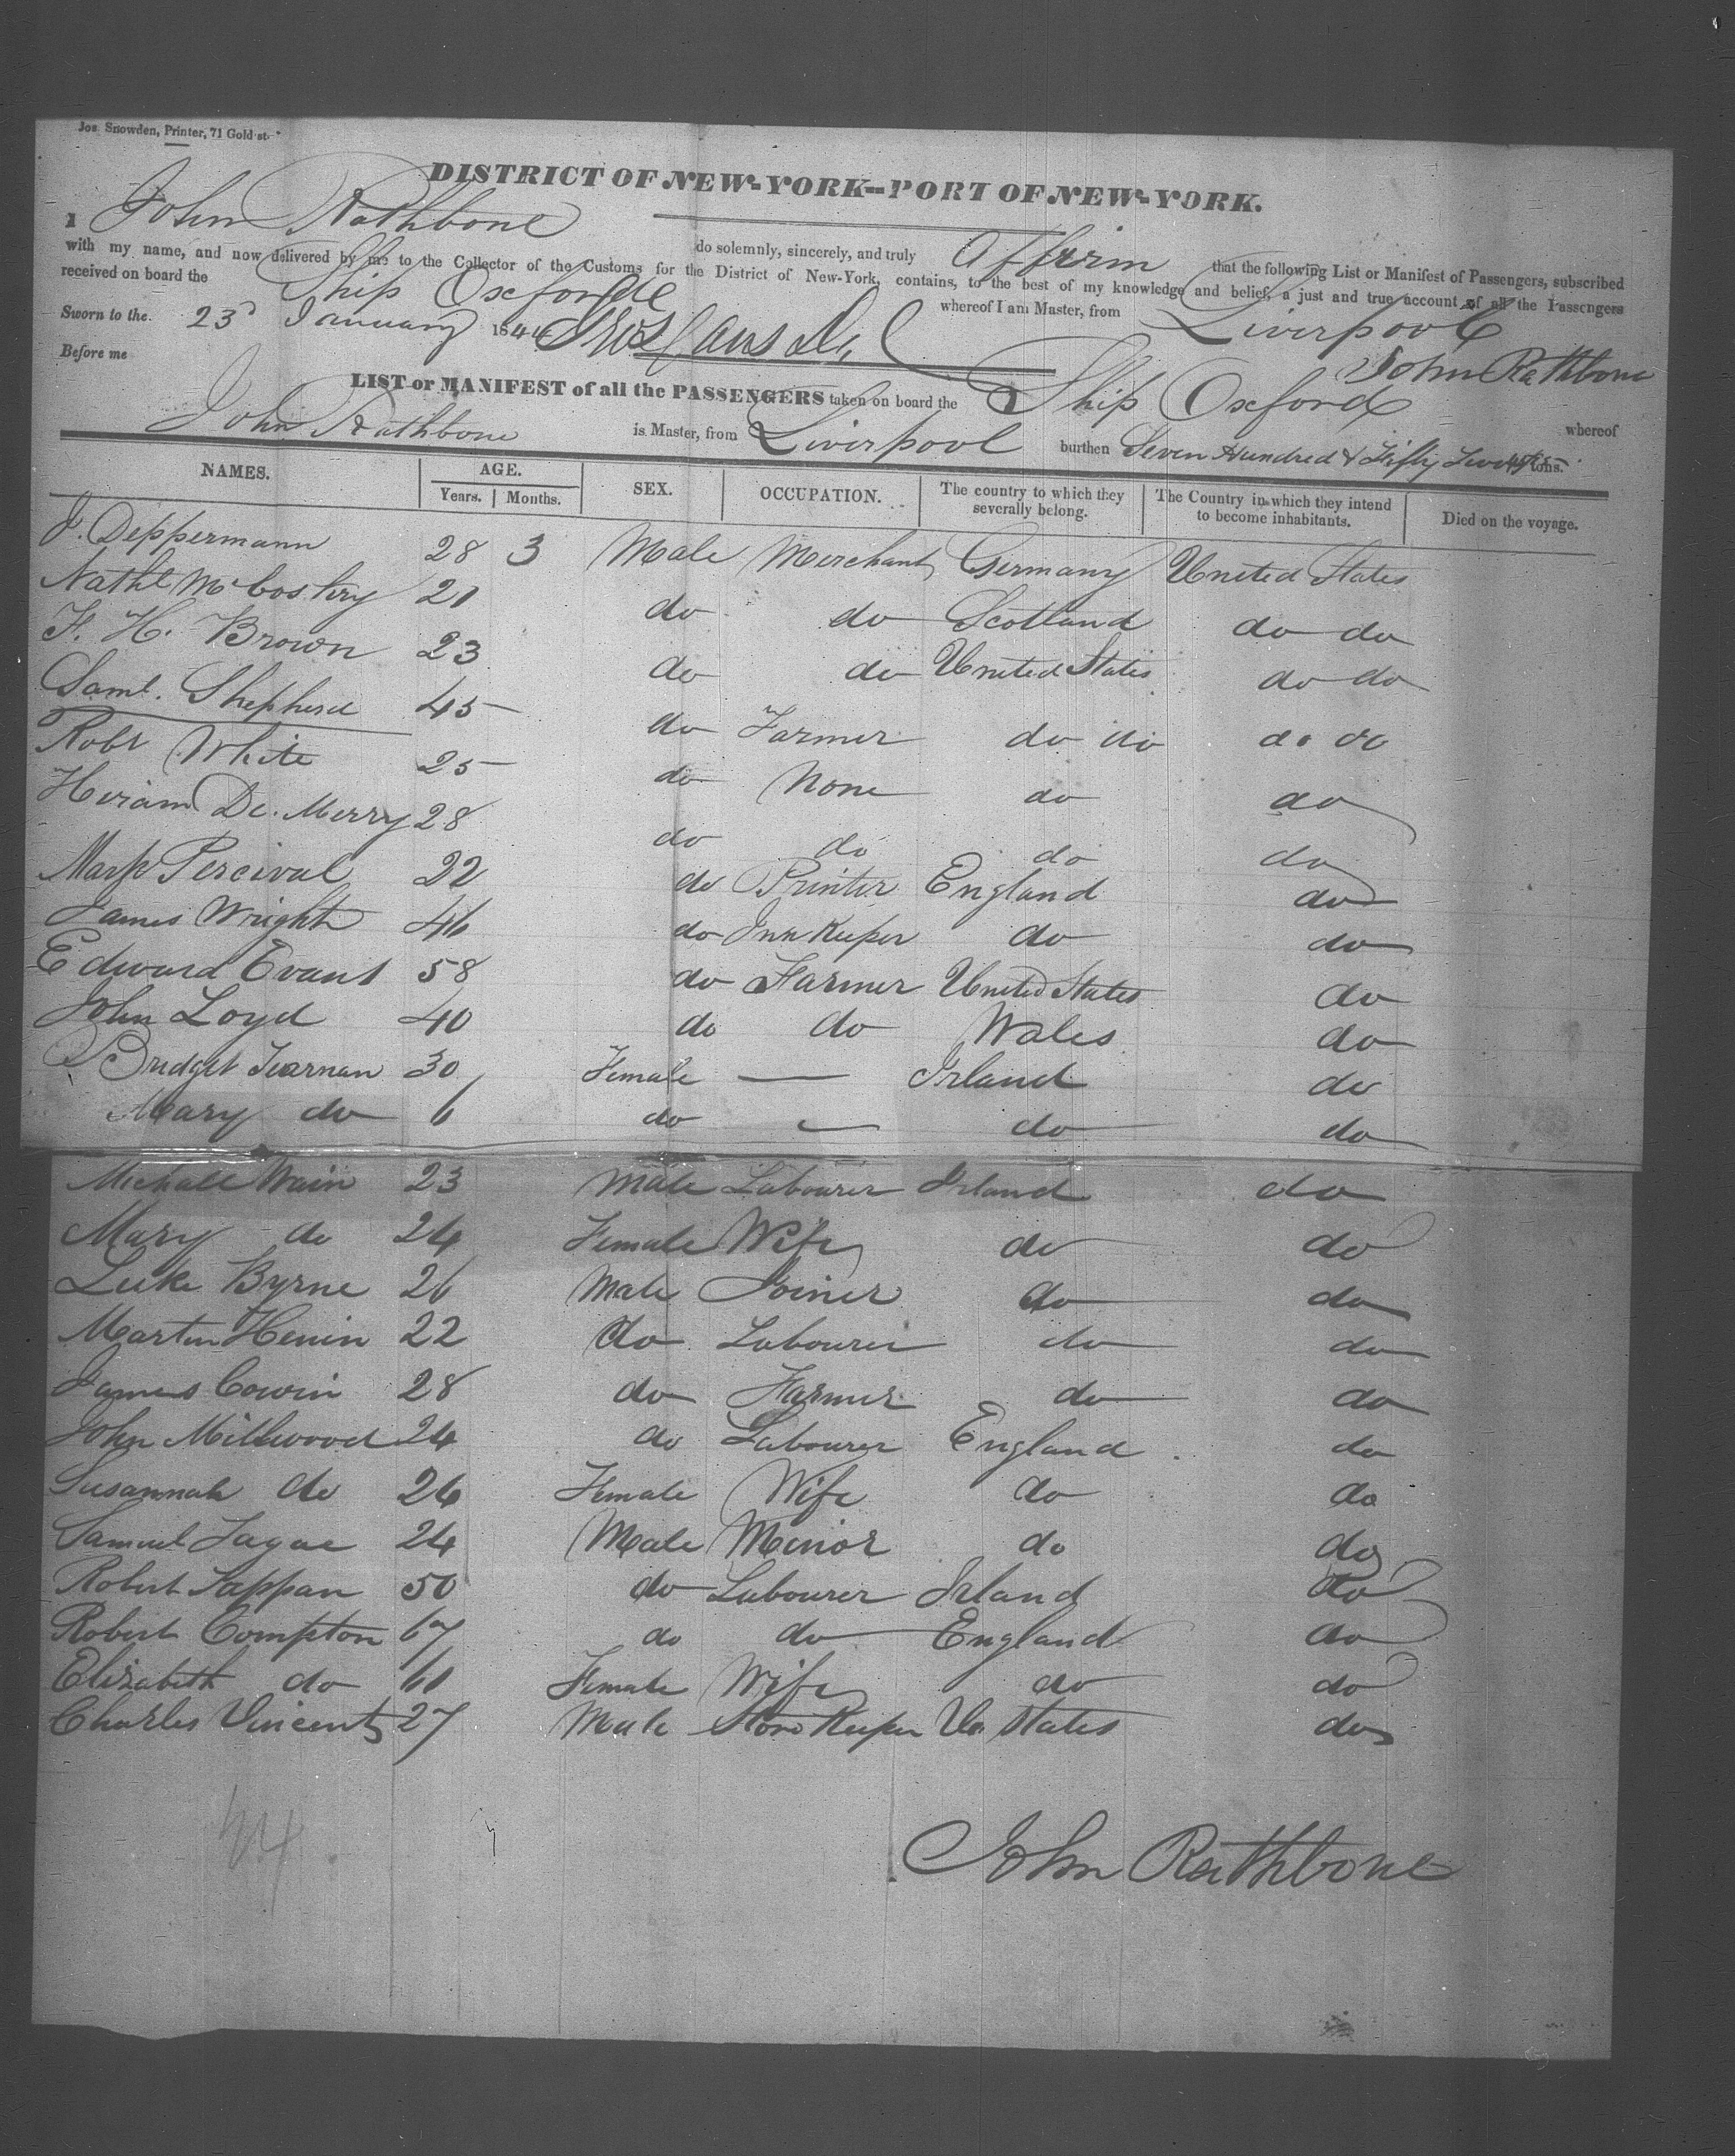 Jos. Snowden, Printer, 71 Gold-st.
DISTRICT OF NEW-YORK--PORT OF NEW-YORK.
I John Rathbone do solemnly, sincerely, and truly affirm that the following List or Manifest of Passengers, subscribed
with my name, and now delivered by me to the Collector of the Customs for the District of New-York, contains, to the best of my knowledge and belief, a just and true account of all the Passengers
received on board the Ship Oxford whereof I am Master, from Liverpool
Sworn to the 23d January 184
John Rathbone
Before me
LIST or MANIFEST of all the PASSENGERS taken on board the Ship Oxford whereof
John Rathbone is Master, from Liverpool burthen Seven Hundred & Fifty Two tons.
NAMES. AGE. SEX. OCCUPATION. The country to which they severally belong. The Country in which they intend to become inhabitants. Died on the voyage.
Years. Months.
J. Deppermann 28 3 Male Merchant Germany United States
Nathl 21 do do Scotland do do
F. H. Brown 23 do do United States do do
Saml. Shepherd 45 do Farmer do do do do
Robt White 25 do None do do
Hiram De. Merry 28 do do do do
Percival 22 do Printer England do
James Wright 46 do Inn Keeper do do
Edward Evans 58 do Farmer United States do
John Loyd 40 do do Wales do
Bridget Tiernan 30 Female — Irland do
Mary do 6 do — do do
Michall Wain 23 Male Labourer Irland do
Mary do 24 Female Wife do do
Luke Byrne 26 Male Joiner do do
Martin Henin 22 do Labourer do do
James Cowin 28 do Farmer do do
John Millwood 24 do Labourer England do
Susannah do 26 Female Wife do do
Samuel 24 Male Minor do do
Robert Tappan 50 do Labourer Irland do
Robert Compton 67 do do England do
Elizabeth do 61 Female Wife do do
Charles Vincent 27 Male Store Keeper U. States do
John Rathbone